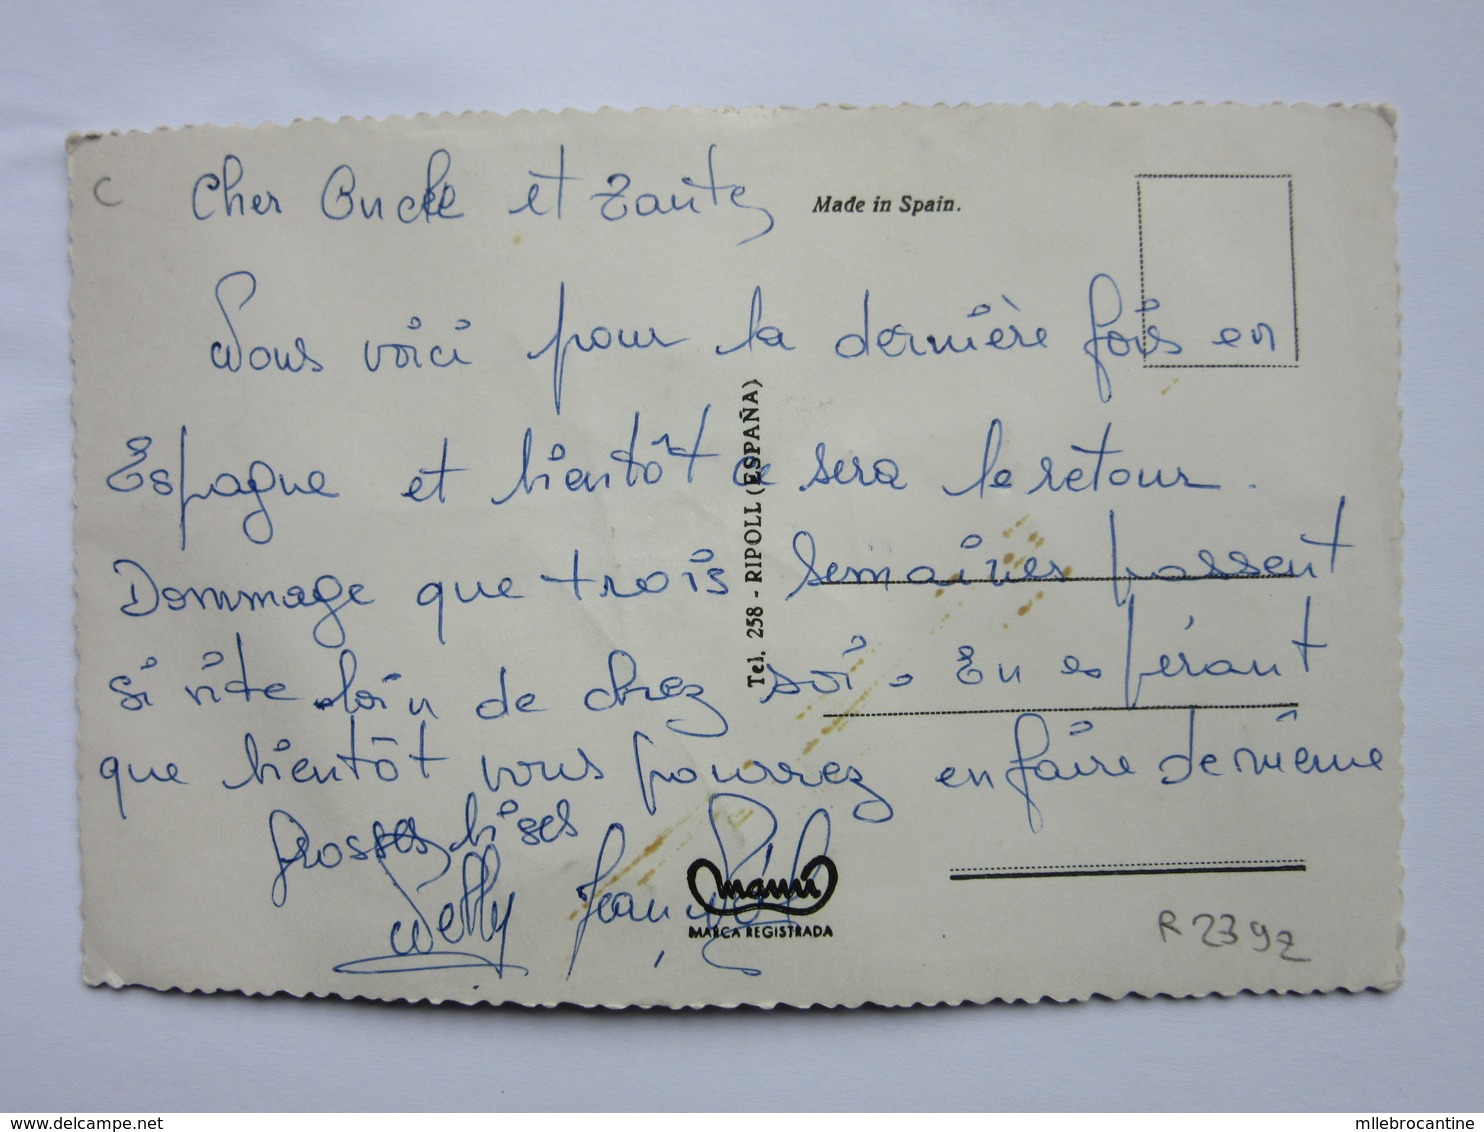 C
Cher Oncle et Tante
Made in Spain.
Nous voici pour la dernière fois en
Espagne et bientôt ce sera le retour.
Dommage que trois semaines passent
si vite loin de chez soi. En espérant
que bientôt vous pourrez en faire de même
Grosses bises
Jean
Tel. 258 - RIPOLL (ESPAÑA)
MARCA REGISTRADA
R 2392
delcampe.net
mllebrocantine